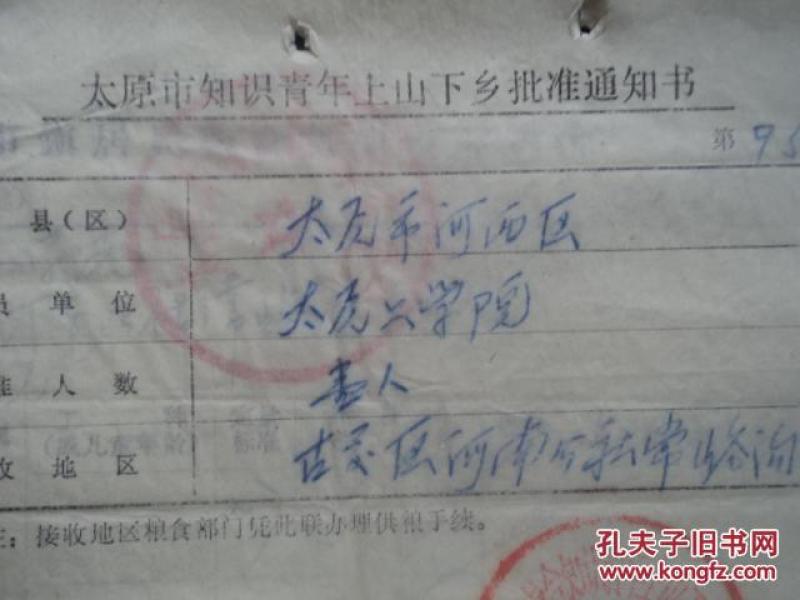 太原市知识青年上山下乡批准通知书
第 95
县(区) 太原市河西区
员单位 太原工学院
准人数 壹人
收地区 古交区河南公社常峪沟
注：接收地区粮食部门凭此联办理供粮手续。
孔夫子旧书网
www.kongfz.com